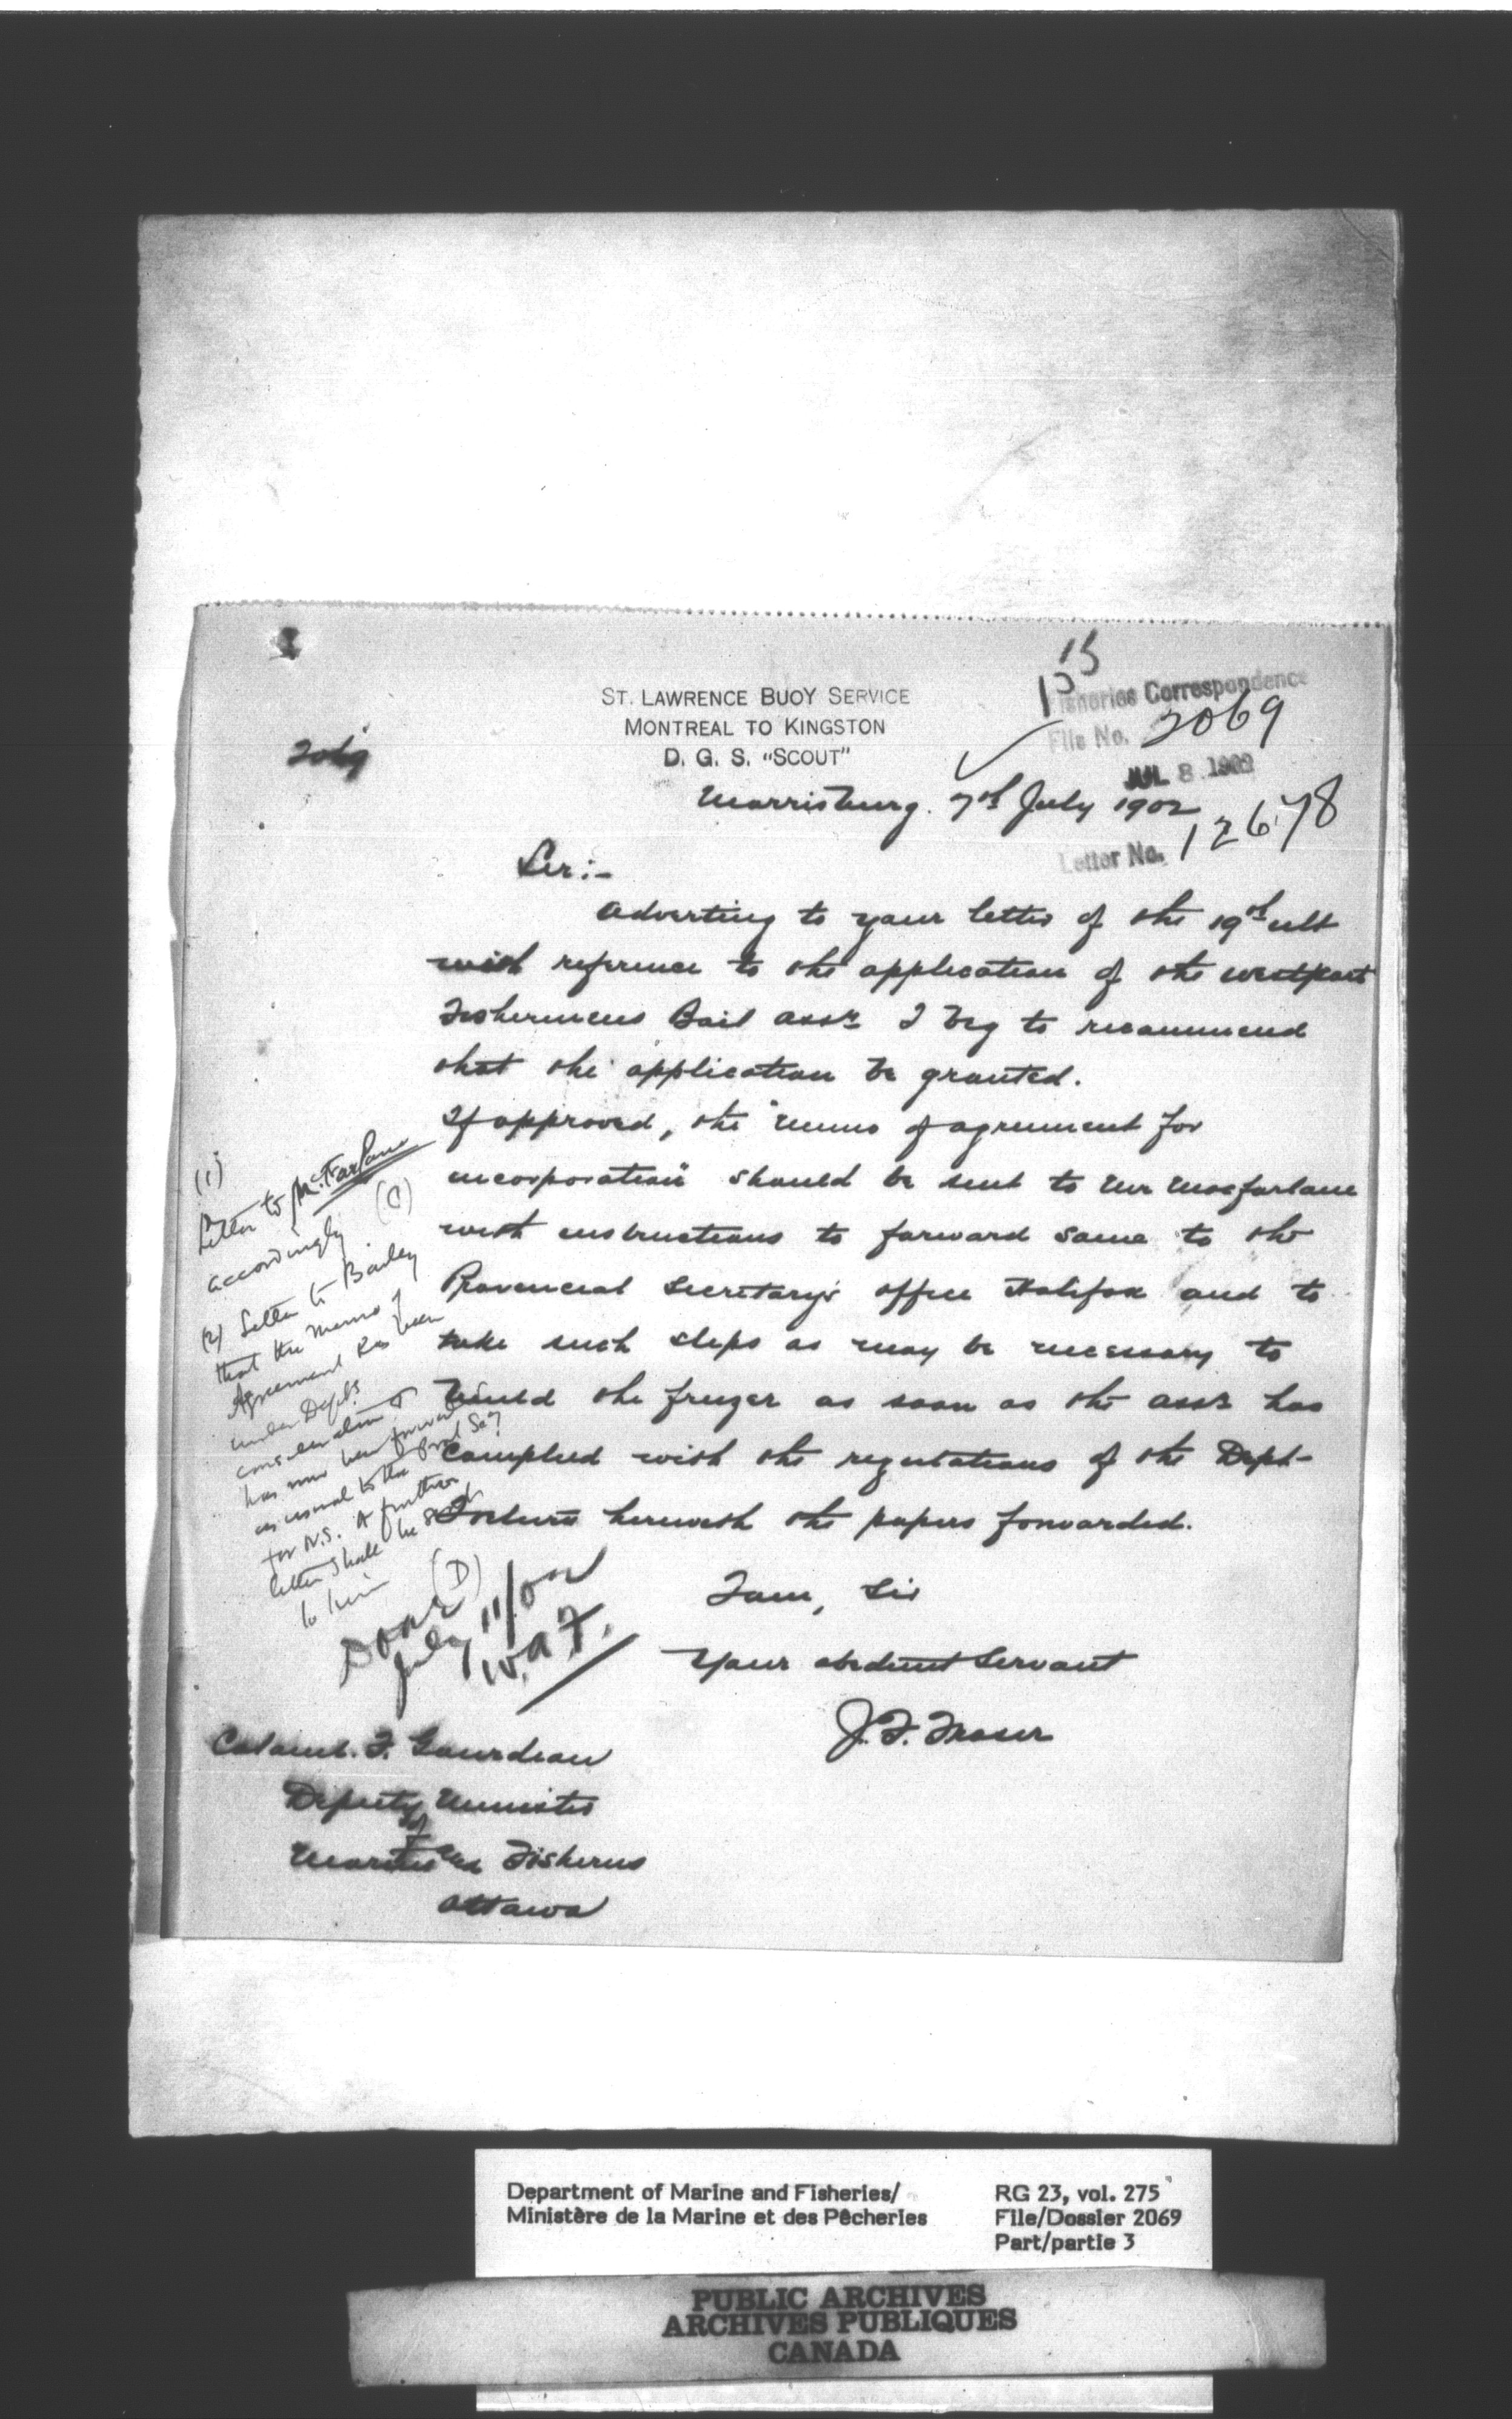 15
13
Fisheries Correspondence
File No. 2069
JUL 8 1902
Letter No. 12678
2069
ST. LAWRENCE BUOY SERVICE
MONTREAL TO KINGSTON
D. G. S. "SCOUT"
Morrisburg. 7th July 1902
Sir:-
Adverting to your letter of the 19th ult
with reference to the application of the Westport
Fishermens Bait Assn I beg to recommend
that the application be granted.
If approved, the "Memo of agreement for
incorporation" should be sent to Mr Macfarlane
with instructions to forward same to the
Provincial Secretary's office Halifax and to
take such steps as may be necessary to
build the freezer as soon as the assn has
complied with the regulations of the Dept-
I return herewith the papers forwarded.
I am, Sir
Your obedient Servant
J. F. Fraser
Colonel. F. Gourdeau
Deputy Minister
of
Marine and Fisheries
Ottawa
(1)
Letter to McFarlane
accordingly (C)
(2) Letter to Bailey
that the Memo of
Agreement has been
under Dept's
consideration &
has now been forwarded
as usual to the Provl Secy
for N.S. A further
letter shall be sent
to him (D)
Done
July 11/02
W.A.F.
Department of Marine and Fisheries/
Ministère de la Marine et des Pêcheries
RG 23, vol. 275
File/Dossier 2069
Part/partie 3
PUBLIC ARCHIVES
ARCHIVES PUBLIQUES
CANADA